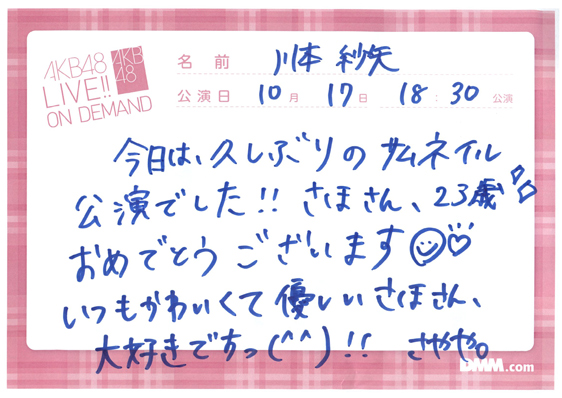 AKB48
LIVE!!
ON DEMAND
AKB
48
名前 川本 紗矢
公演日 10月 17日 18:30 公演
今日は、久しぶりの サムネイル
公演でした!! さほさん、23歳
おめでとう ございます
いつもかわいくて 優しいさほさん、
大好きですっ(^^)!! さやや。
DMM.com